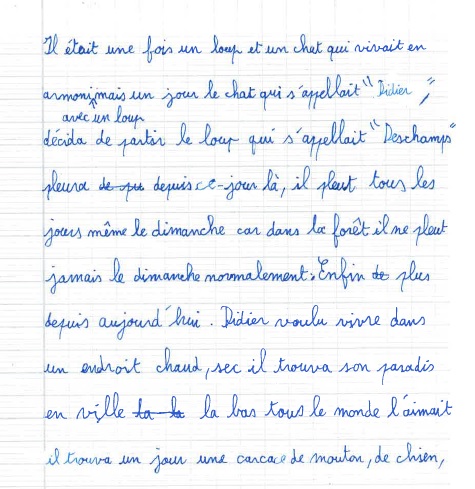 Il était une fois un loup et un chat qui vivait en
armoni, mais un jour le chat qui s'appellait "Didier",
avec un loup
décida de partir le loup qui s'appellait "Deschamps"
pleura de pu depuis ce-jour là, il pleut tous les
jours même le dimanche car dans la forêt il ne pleut
jamais le dimanche normalement. Enfin de plus
depuis aujourd'hui. Didier voulu vivre dans
un endroit chaud, sec il trouva son paradis
en ville la la la bas tous le monde l'aimait
il trouva un jour une carcace de mouton, de chien,